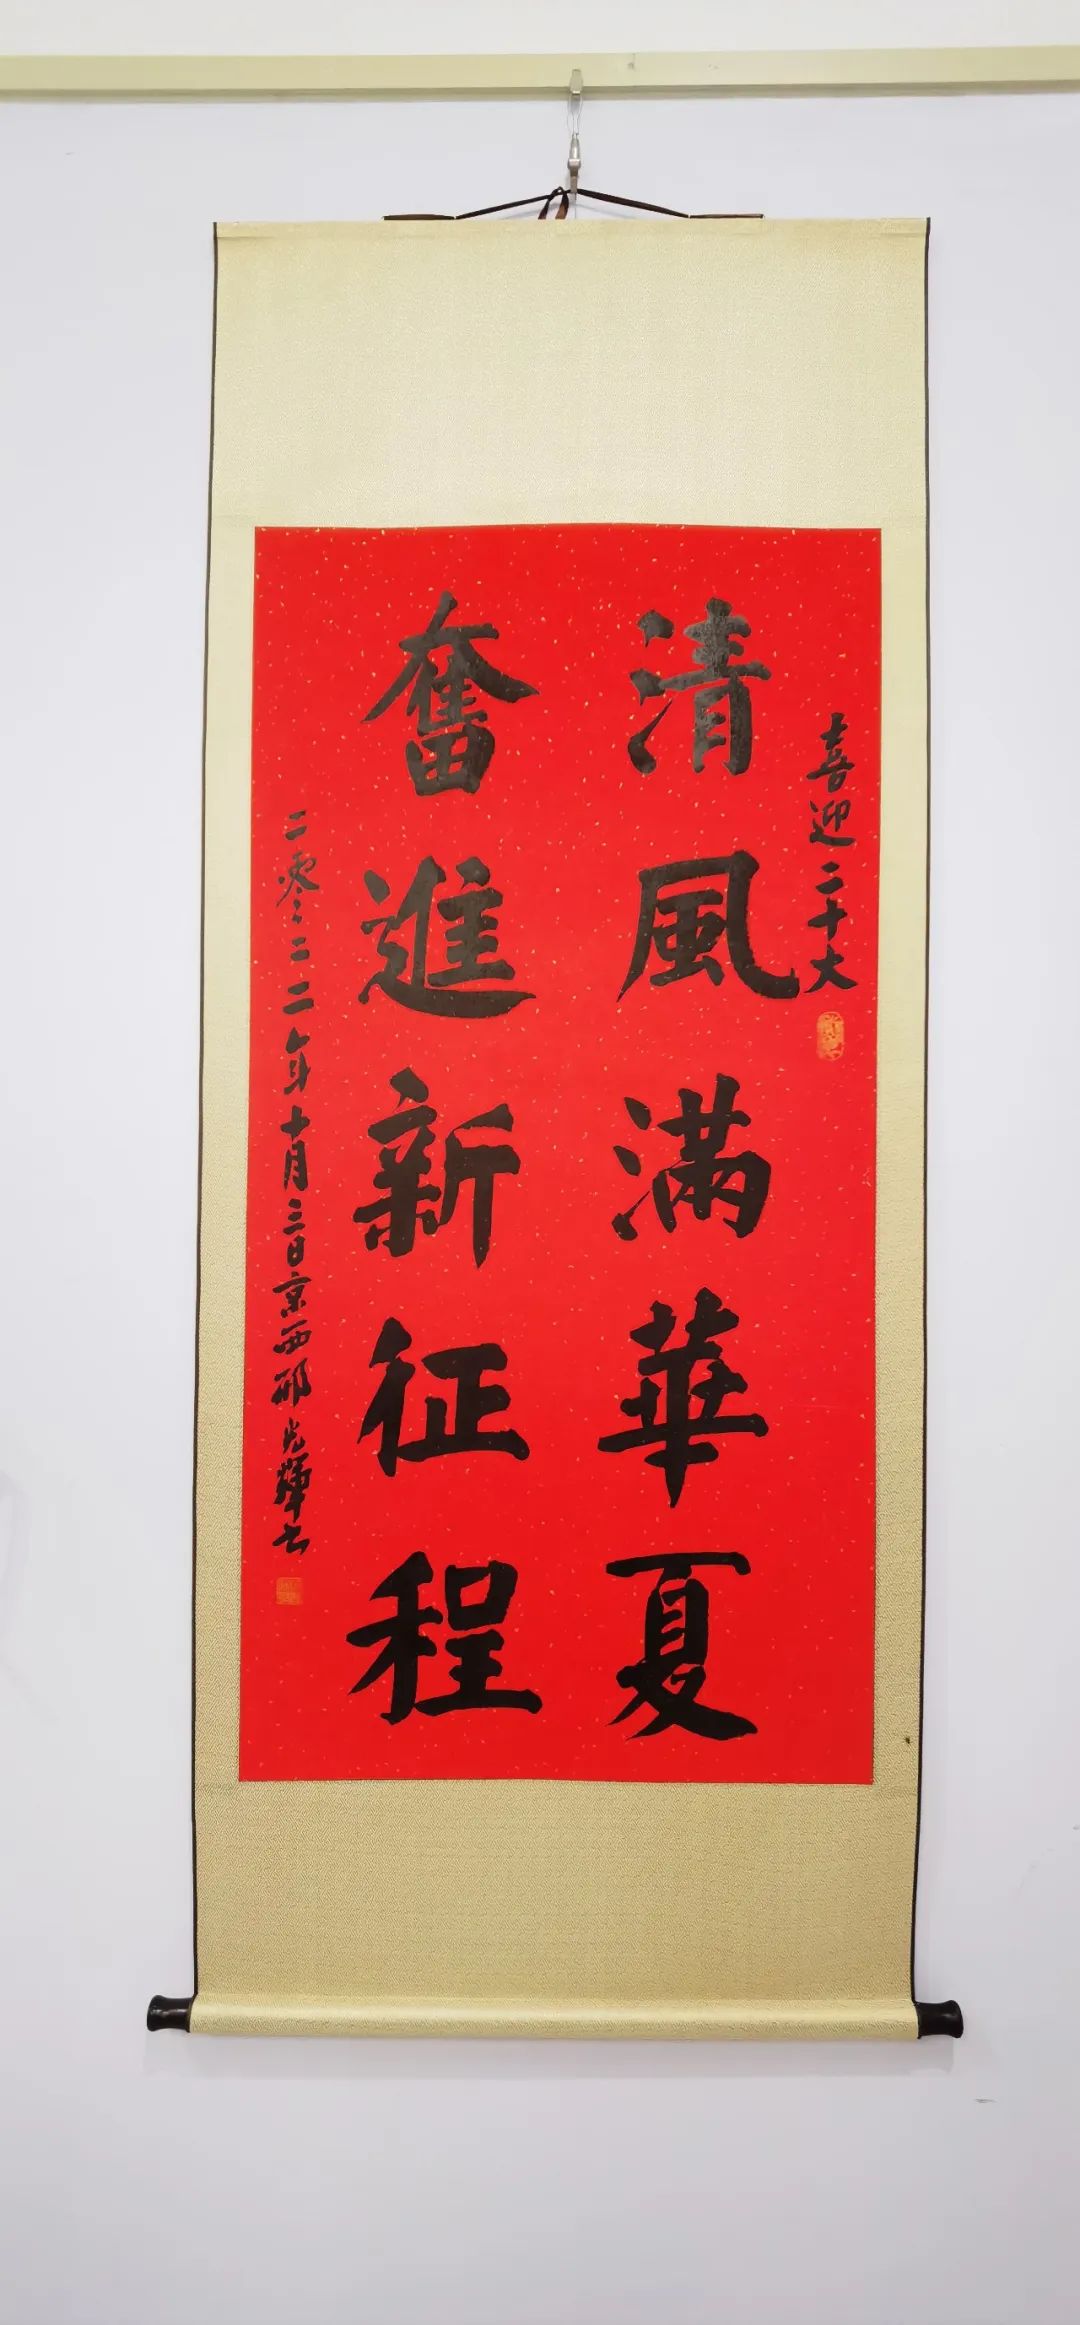 喜迎二十大
清風滿華夏
奮進新征程
二零二二年十月三日京西邵光輝书